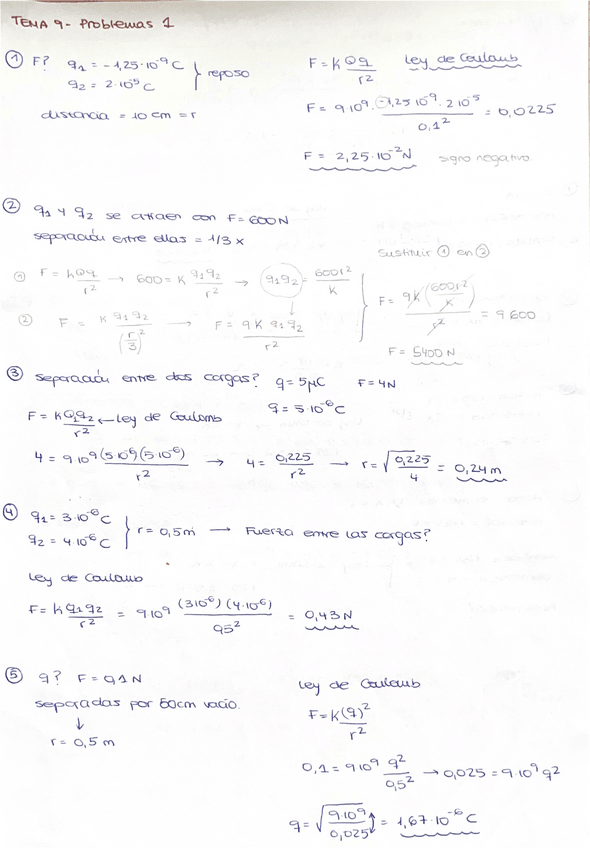 TEMA 9 - Problemas 1
① F? q₁ = -1,25·10⁻⁹ C
q₂ = 2·10⁻⁵ C } reposo
distancia = 10 cm = r
F = K Qq / r² Ley de Coulomb
F = 9·10⁹ · -1,25·10⁻⁹ · 2·10⁻⁵ / 0,1² = 0,0225
F = 2,25·10⁻² N signo negativo.
② q₁ y q₂ se atraen con F = 600N
separación entre ellas = 1/3 x
Sustituir ① en ②
① F = KQq / r² → 600 = K q₁q₂ / r² → q₁q₂ = 600r² / K
② F = K q₁q₂ / (r/3)² → F = 9K q₁q₂ / r²
F = 9K (600r² / K) / r² = 9·600
F = 5400 N
③ Separación entre dos cargas? q = 5μC F = 4N
q = 5·10⁻⁶ C
F = K Q₁q₂ / r² ← Ley de Coulomb
4 = 9·10⁹ (5·10⁻⁶)(5·10⁻⁶) / r² → 4 = 0,225 / r² → r = √(0,225 / 4) = 0,24 m
④ q₁ = 3·10⁻⁶ C
q₂ = 4·10⁻⁶ C } r = 0,5 m → Fuerza entre las cargas?
Ley de Coulomb
F = K q₁q₂ / r² = 9·10⁹ (3·10⁻⁶)(4·10⁻⁶) / 0,5² = 0,43 N
⑤ q? F = 0,1 N
separadas por 50cm vacío.
↓
r = 0,5 m
Ley de Coulomb
F = K (q)² / r²
0,1 = 9·10⁹ q² / 0,5² → 0,025 = 9·10⁹ q²
q = √(9·10⁹ / 0,025) = 1,67·10⁻⁶ C